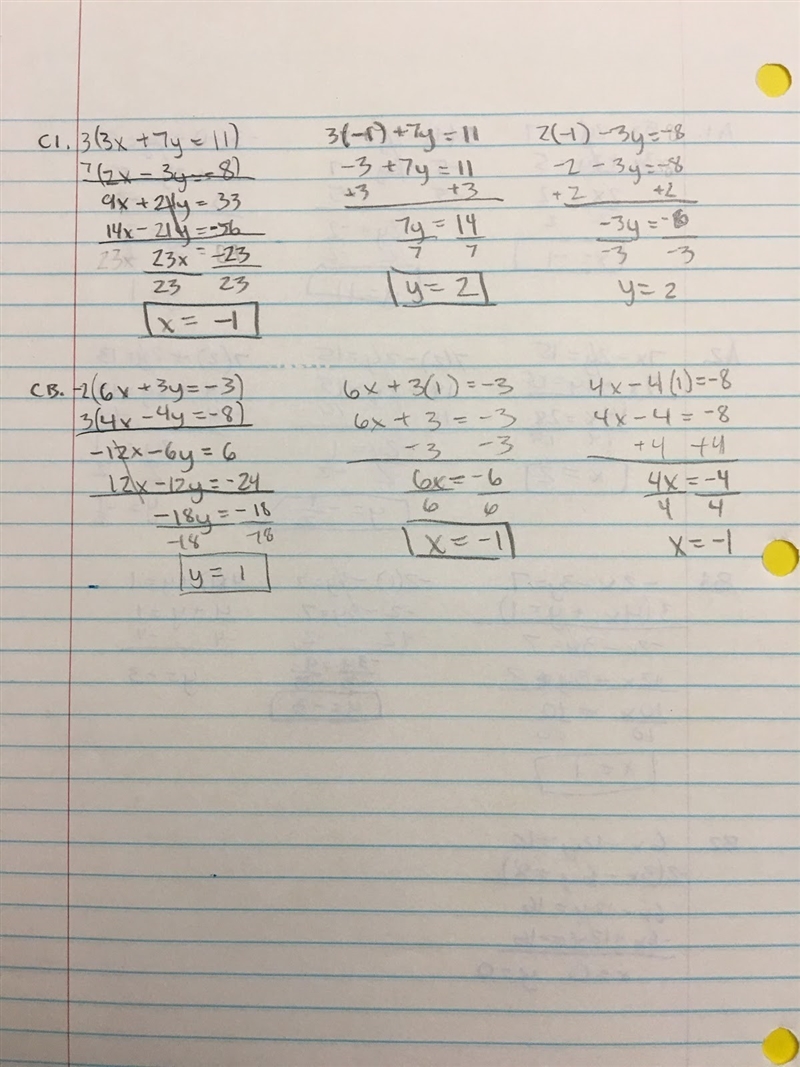 C1. 3(3x + 7y = 11)
7(2x - 3y = -8)
9x + 21y = 33
14x - 21y = -56
23x = -23
23 23
x = -1
3(-1) + 7y = 11
-3 + 7y = 11
+3 +3
7y = 14
7 7
y = 2
2(-1) - 3y = -8
-2 - 3y = -8
+2 +2
-3y = -6
-3 -3
y = 2
CB. -2(6x + 3y = -3)
3(4x - 4y = -8)
-12x - 6y = 6
12x - 12y = -24
-18y = -18
-18 -18
y = 1
6x + 3(1) = -3
6x + 3 = -3
-3 -3
6x = -6
6 6
x = -1
4x - 4(1) = -8
4x - 4 = -8
+4 +4
4x = -4
4 4
x = -1